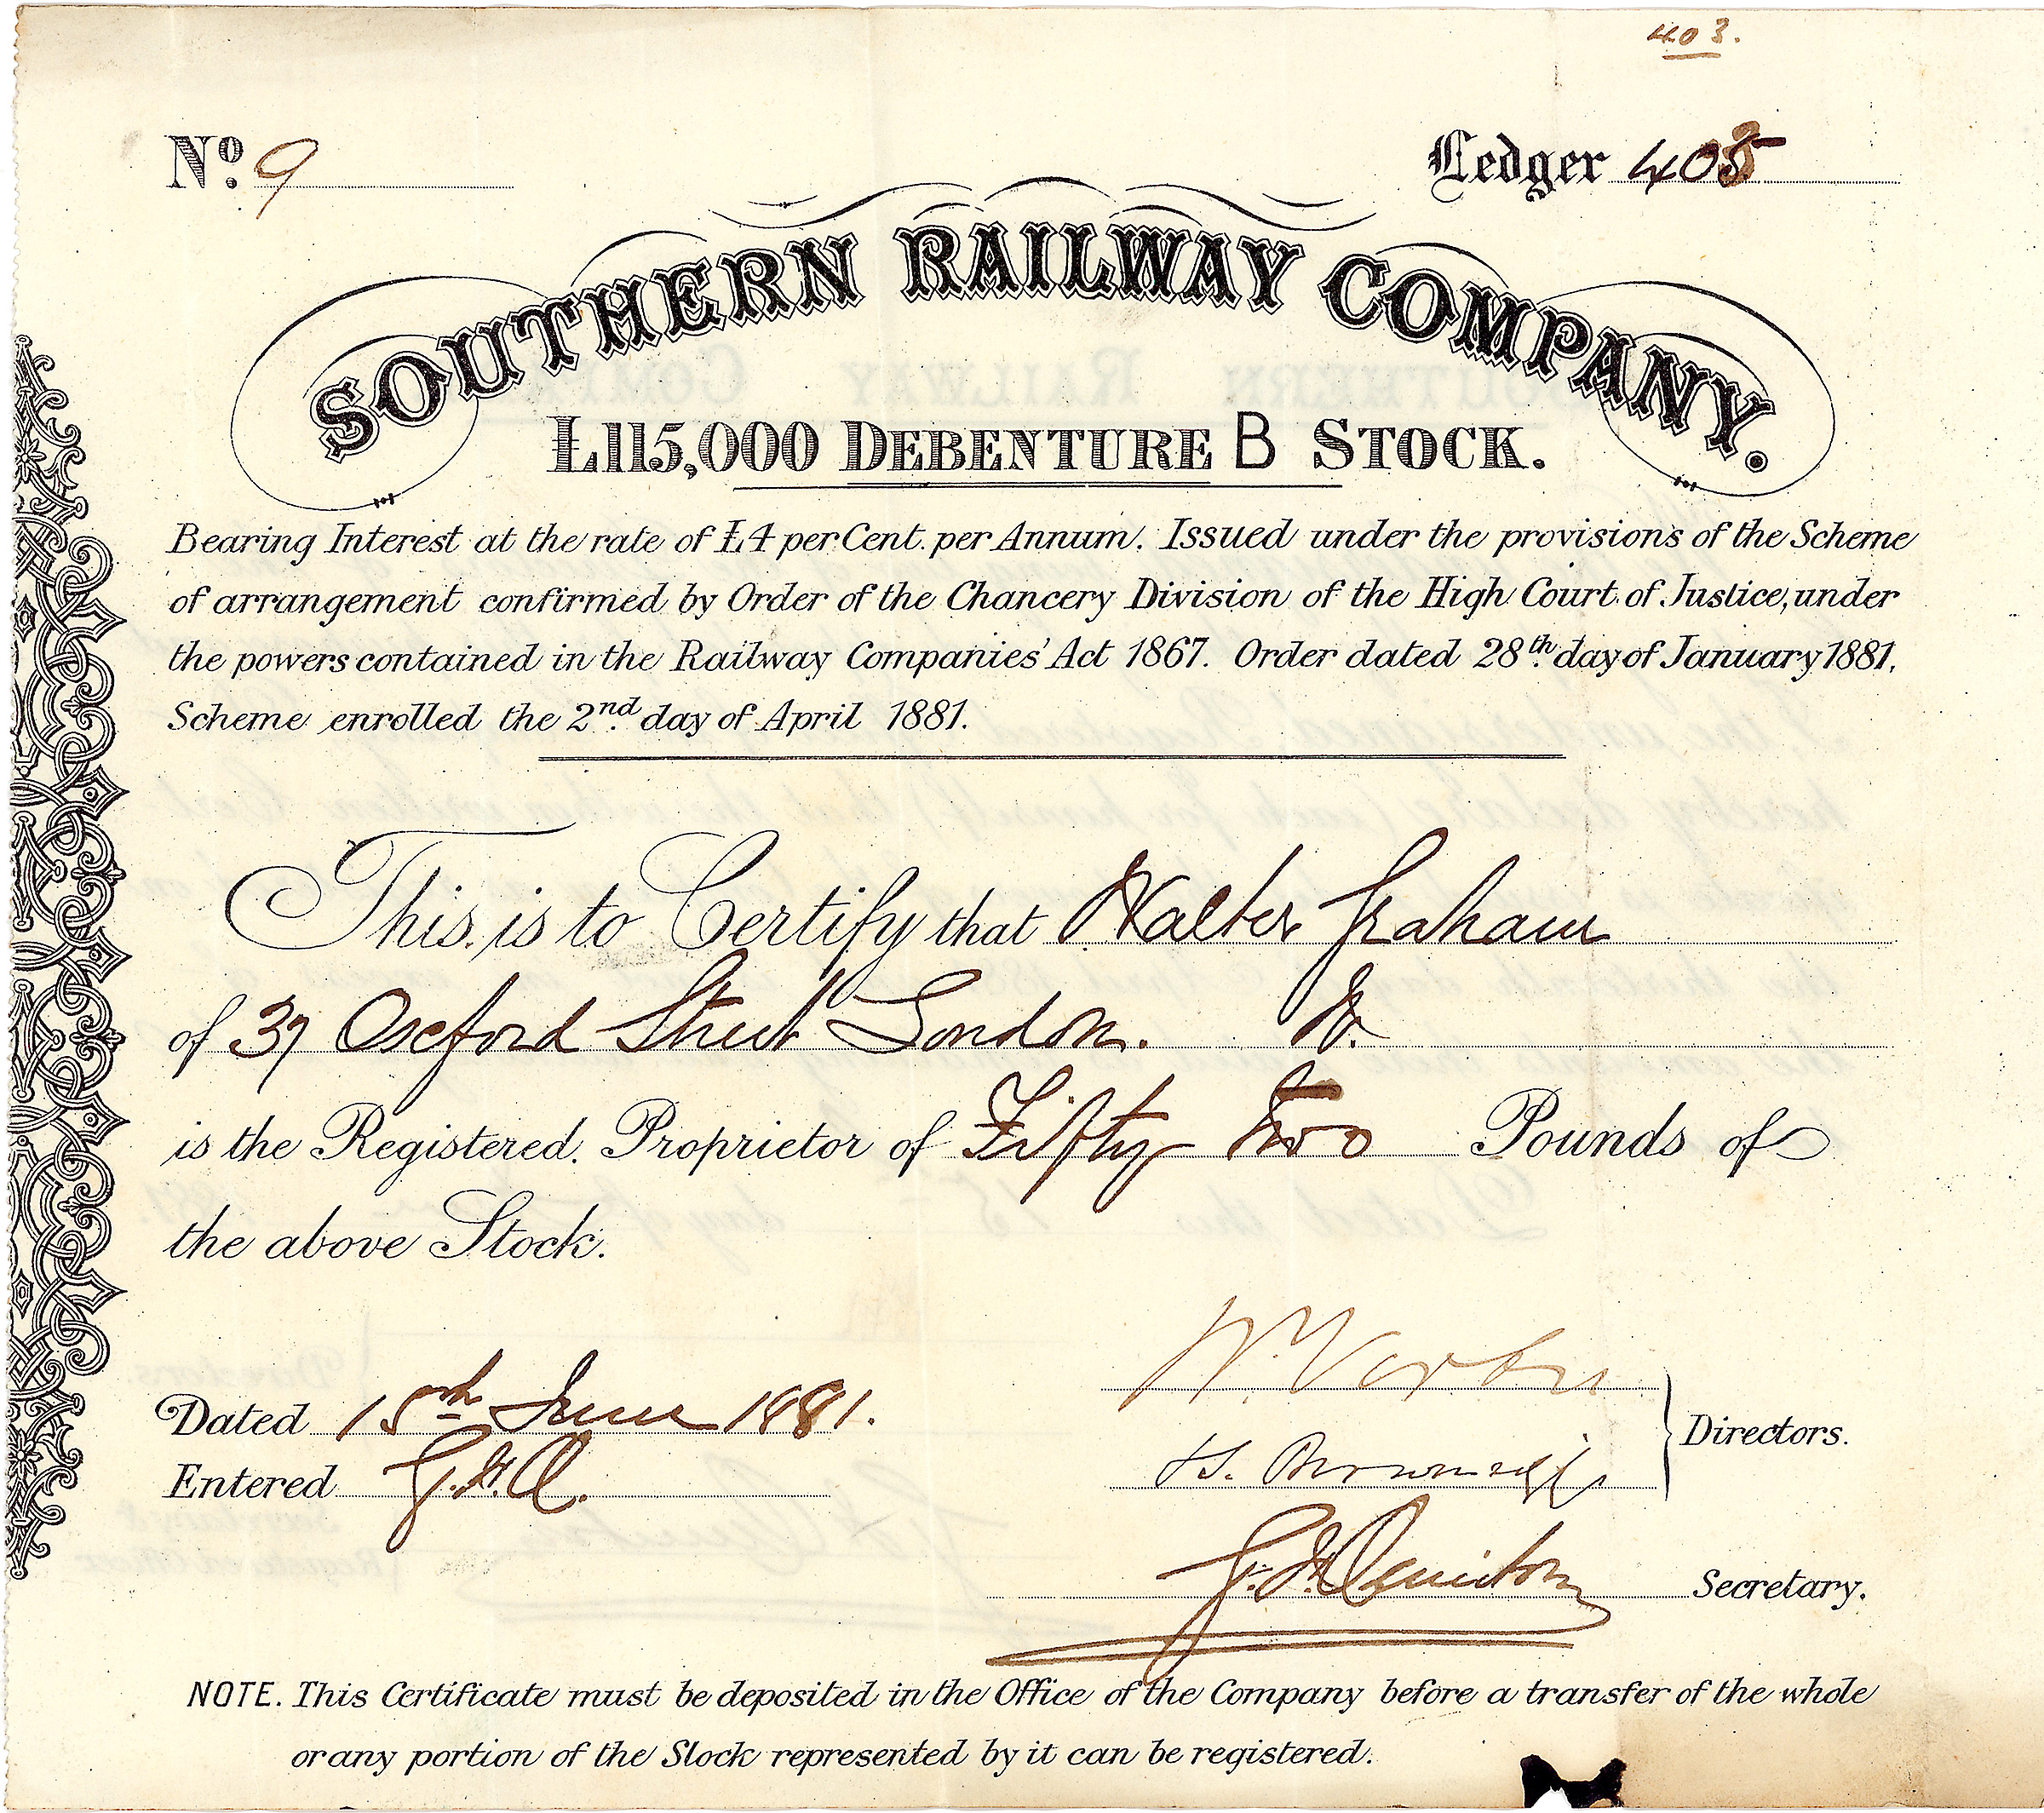 403.
No. 9 Ledger 405
SOUTHERN RAILWAY COMPANY.
£115,000 DEBENTURE B STOCK.
Bearing Interest at the rate of £4 per Cent. per Annum. Issued under the provisions of the Scheme
of arrangement confirmed by Order of the Chancery Division of the High Court of Justice, under
the powers contained in the Railway Companies' Act 1867. Order dated 28th day of January 1881.
Scheme enrolled the 2nd day of April 1881.
This is to Certify that Walter Graham
of 37 Oxford Street London. W.
is the Registered Proprietor of Fifty Two Pounds of
the above Stock.
Dated 15th June 1881.
Entered
Directors.
Secretary.
NOTE. This Certificate must be deposited in the Office of the Company before a transfer of the whole
or any portion of the Stock represented by it can be registered.